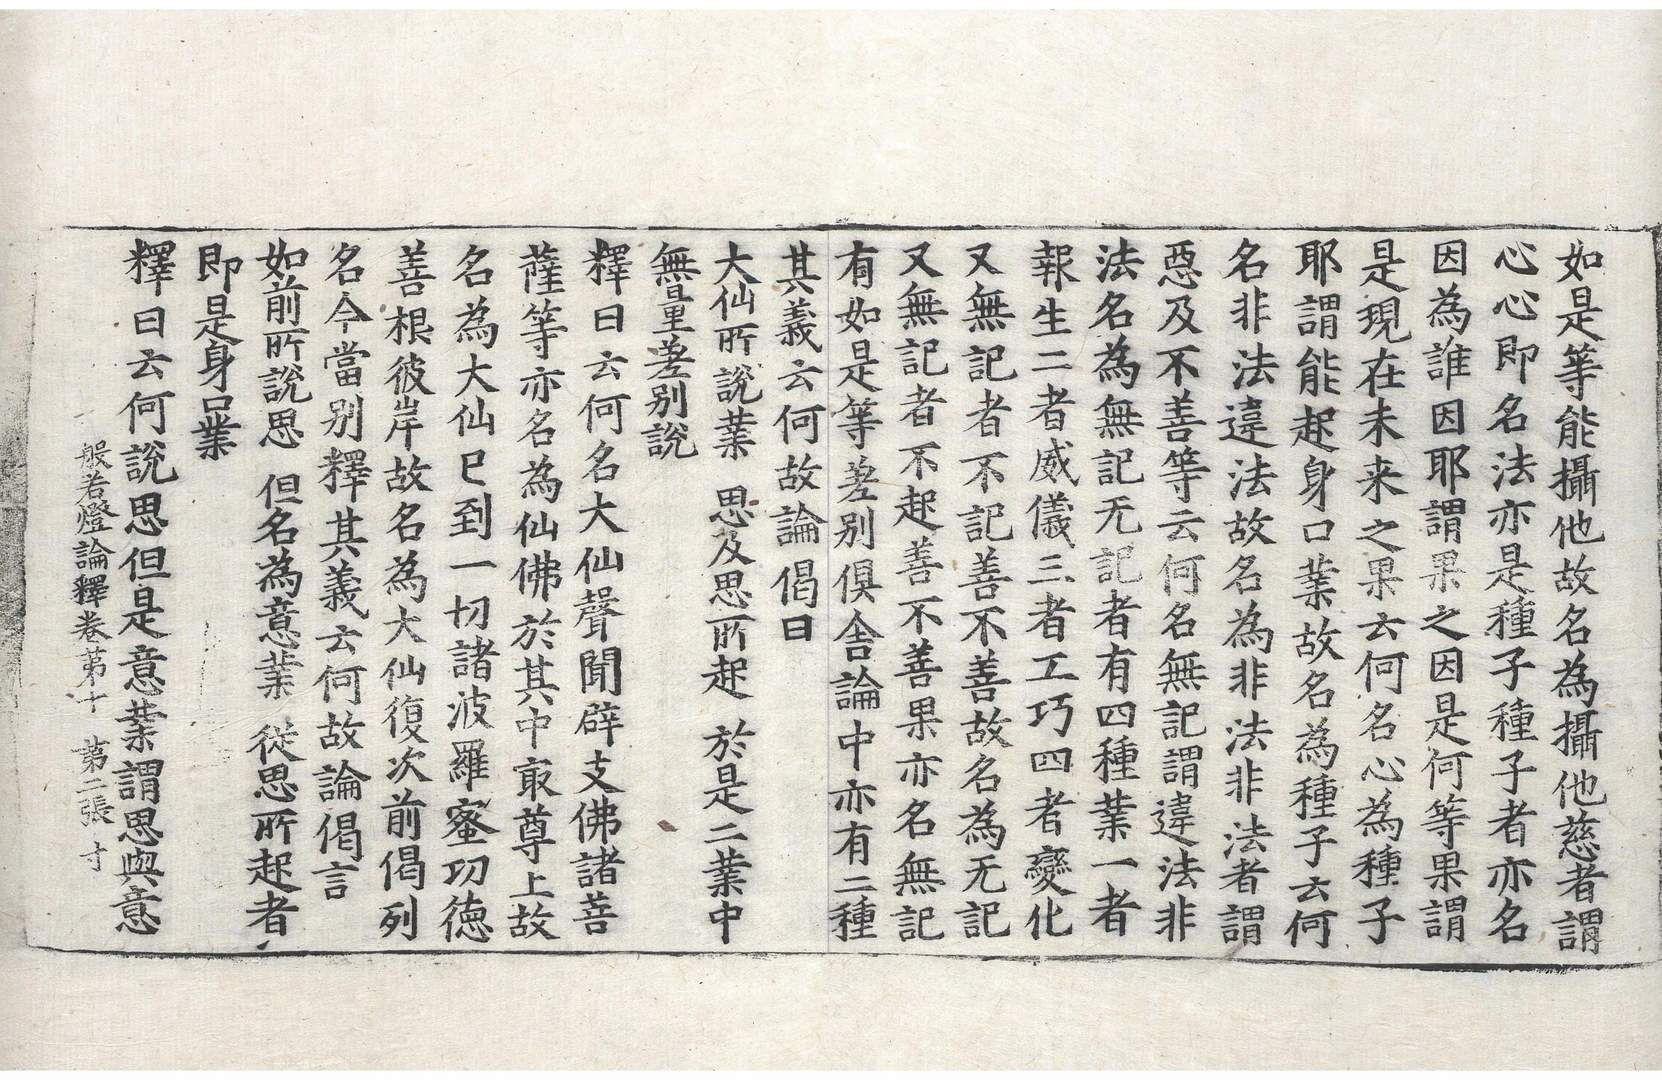 如是等能攝他故名為攝他慈者謂
心心即名法亦是種子種子者亦名
因為誰因耶謂果之因是何等果謂
是現在未来之果云何名心為種子
耶謂能起身口業故名為種子云何
名非法違法故名為非法非法者謂
惡及不善等云何名無記謂違法非
法名為無記无記者有四種業一者
報生二者威儀三者工巧四者變化
又無記者不記善不善故名為无記
又無記者不起善不善果亦名無記
有如是等差别俱舍論中亦有二種
其義云何故論偈曰
大仙所說業 思及思所起 於是二業中
無量差别說
釋曰云何名大仙聲聞辟支佛諸菩
薩等亦名為仙佛於其中㝡尊上故
名為大仙已到一切諸波羅蜜功德
善根彼岸故名為大仙復次前偈列
名今當别釋其義云何故論偈言
如前所說思 但名為意業 從思所起者
即是身口業
釋曰云何說思但是意業謂思與意
般若燈論釋卷第十 第二張 寸